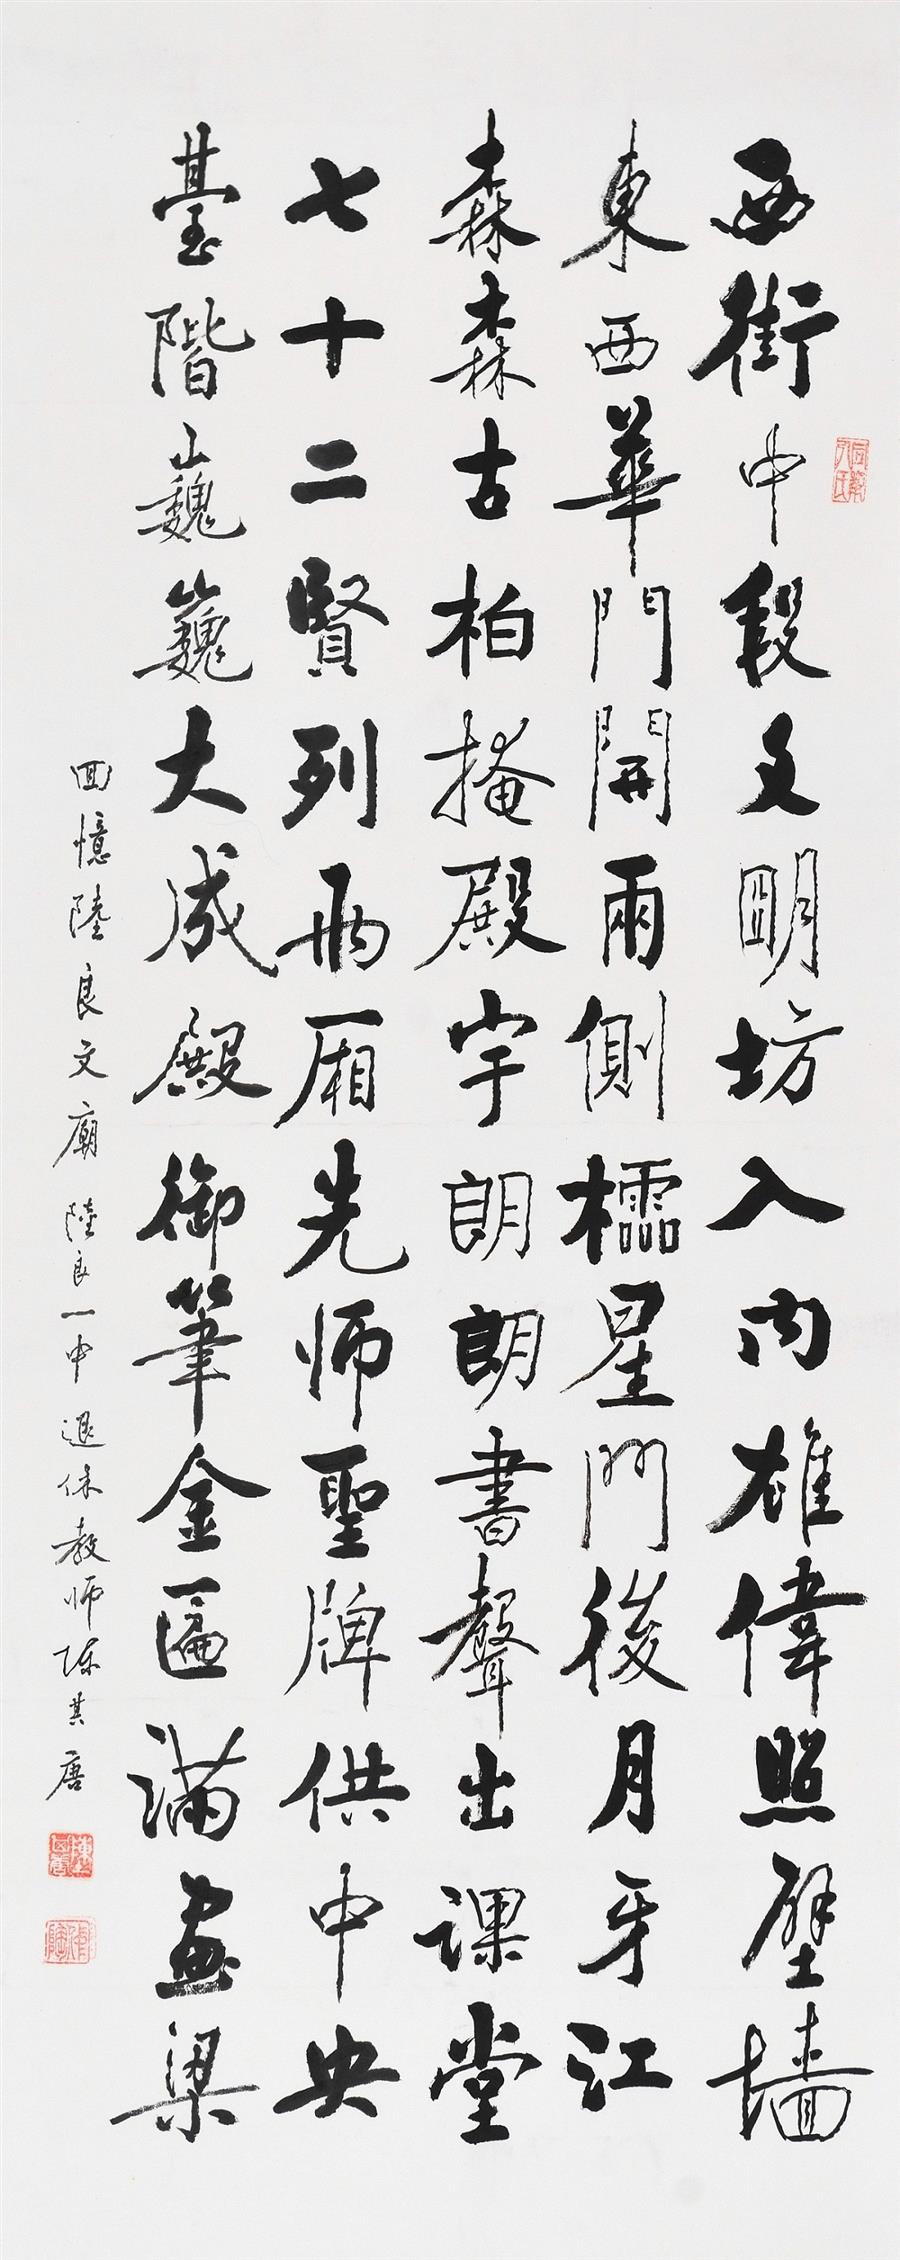 西街中段文明坊入内雄偉照壁墙
東西華門開兩側櫺星門後月牙江
森森古柏掩殿宇朗朗書聲出課堂
七十二賢列兩厢先师聖牌供中央
臺階巍巍大成殿御筆金匾满畫梁
回憶陸良文廟 陸良一中退休教师陈其唐